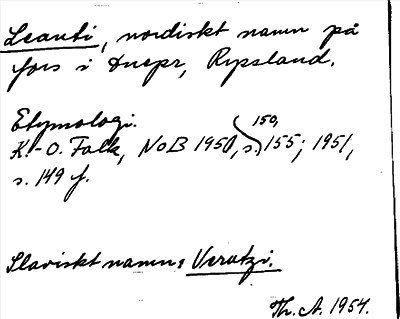 Leanti, nordiskt namn på
fors i Dnepr, Ryssland.
150,
Etymologi.
K.-O. Falk, NoB 1950, s. 155; 1951,
s. 149 f.
Slaviskt namn: Verutzi.
Th. A. 1954.